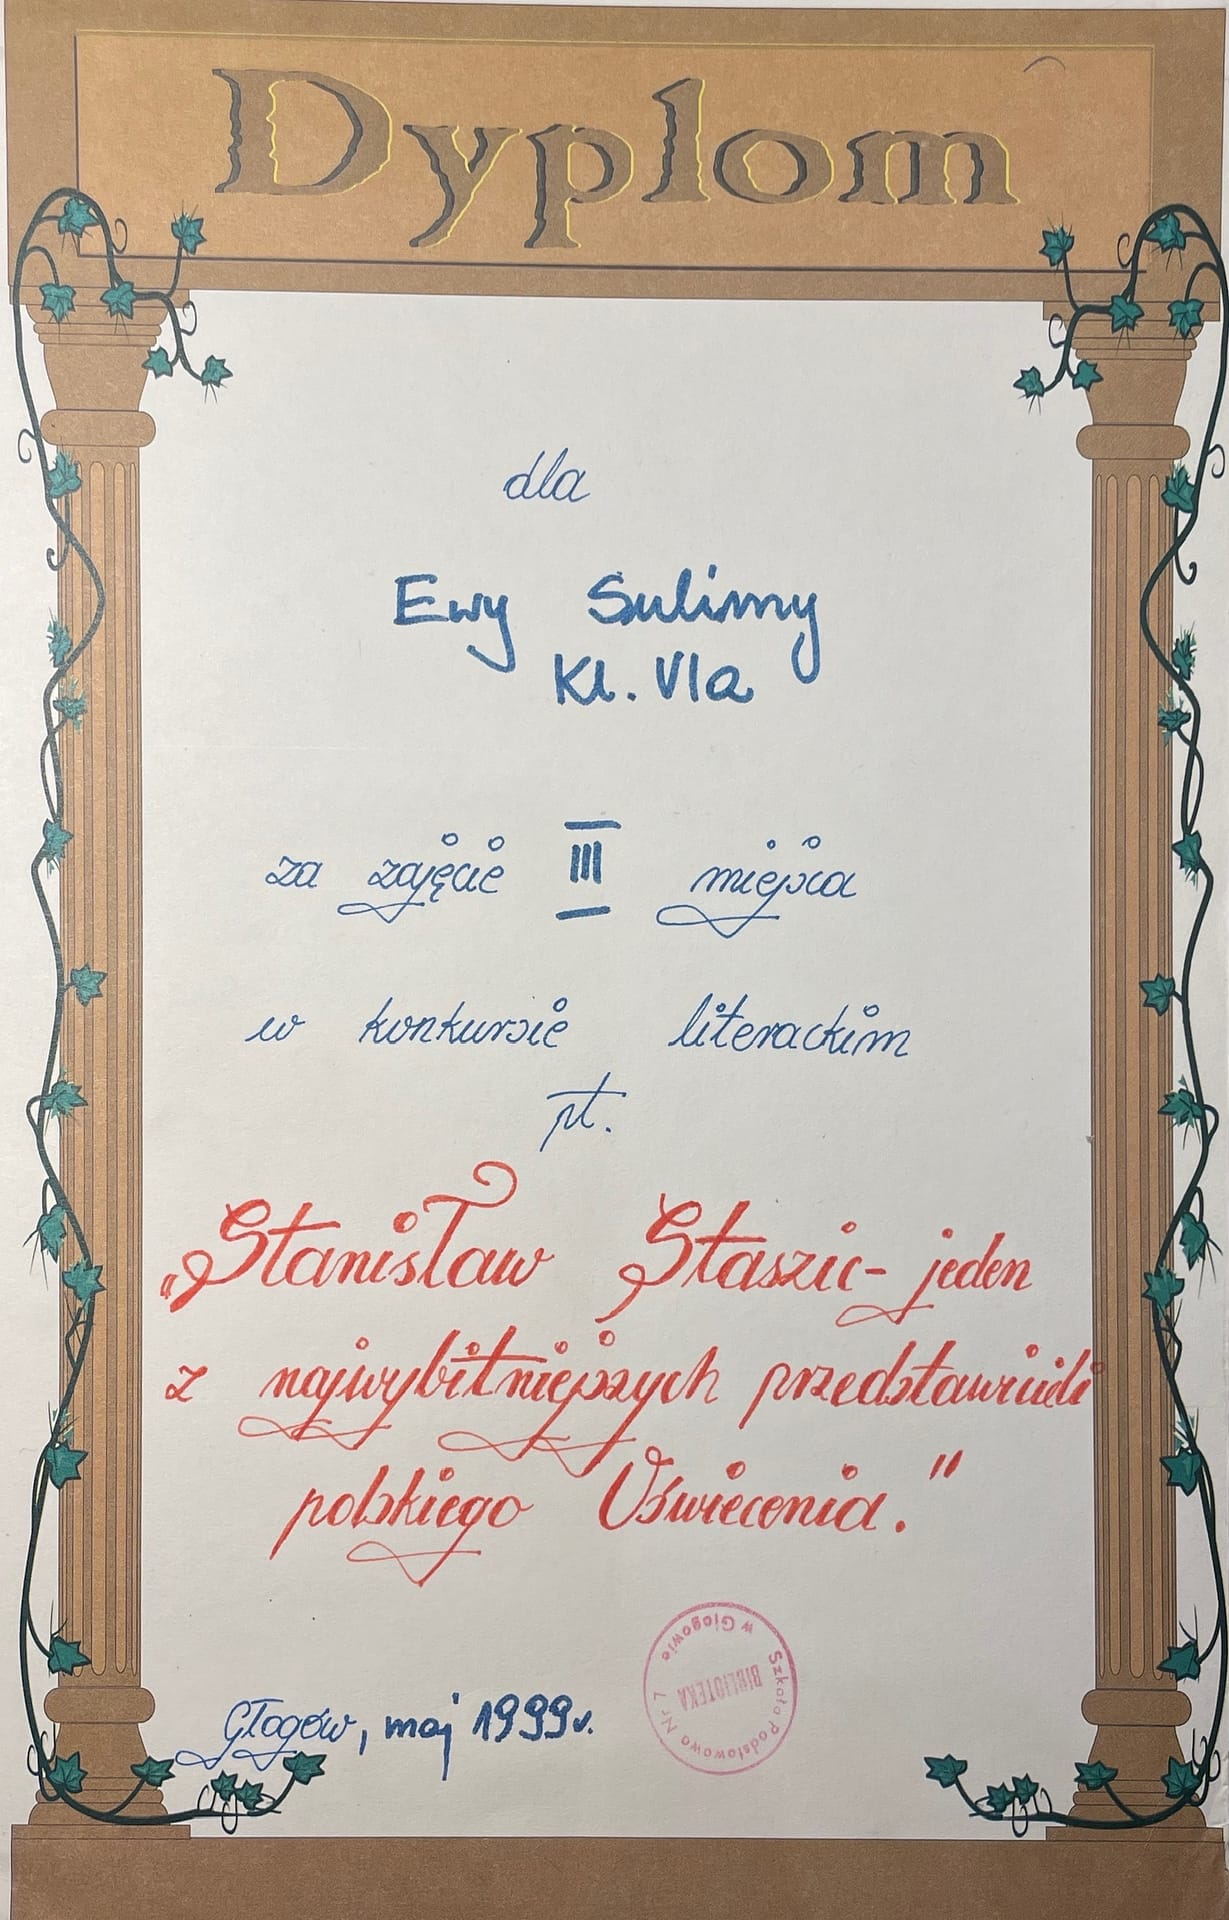 Dyplom
dla
Ewy Sulimy
Kl. VIa
za zajęcie III miejsca
w konkursie literackim
pt.
„Stanisław Staszic - jeden
z najwybitniejszych przedstawicieli
polskiego Oświecenia."
Szkoła Podstawowa Nr 7
w Głogowie
BIBLIOTEKA
Głogów, maj 1999r.